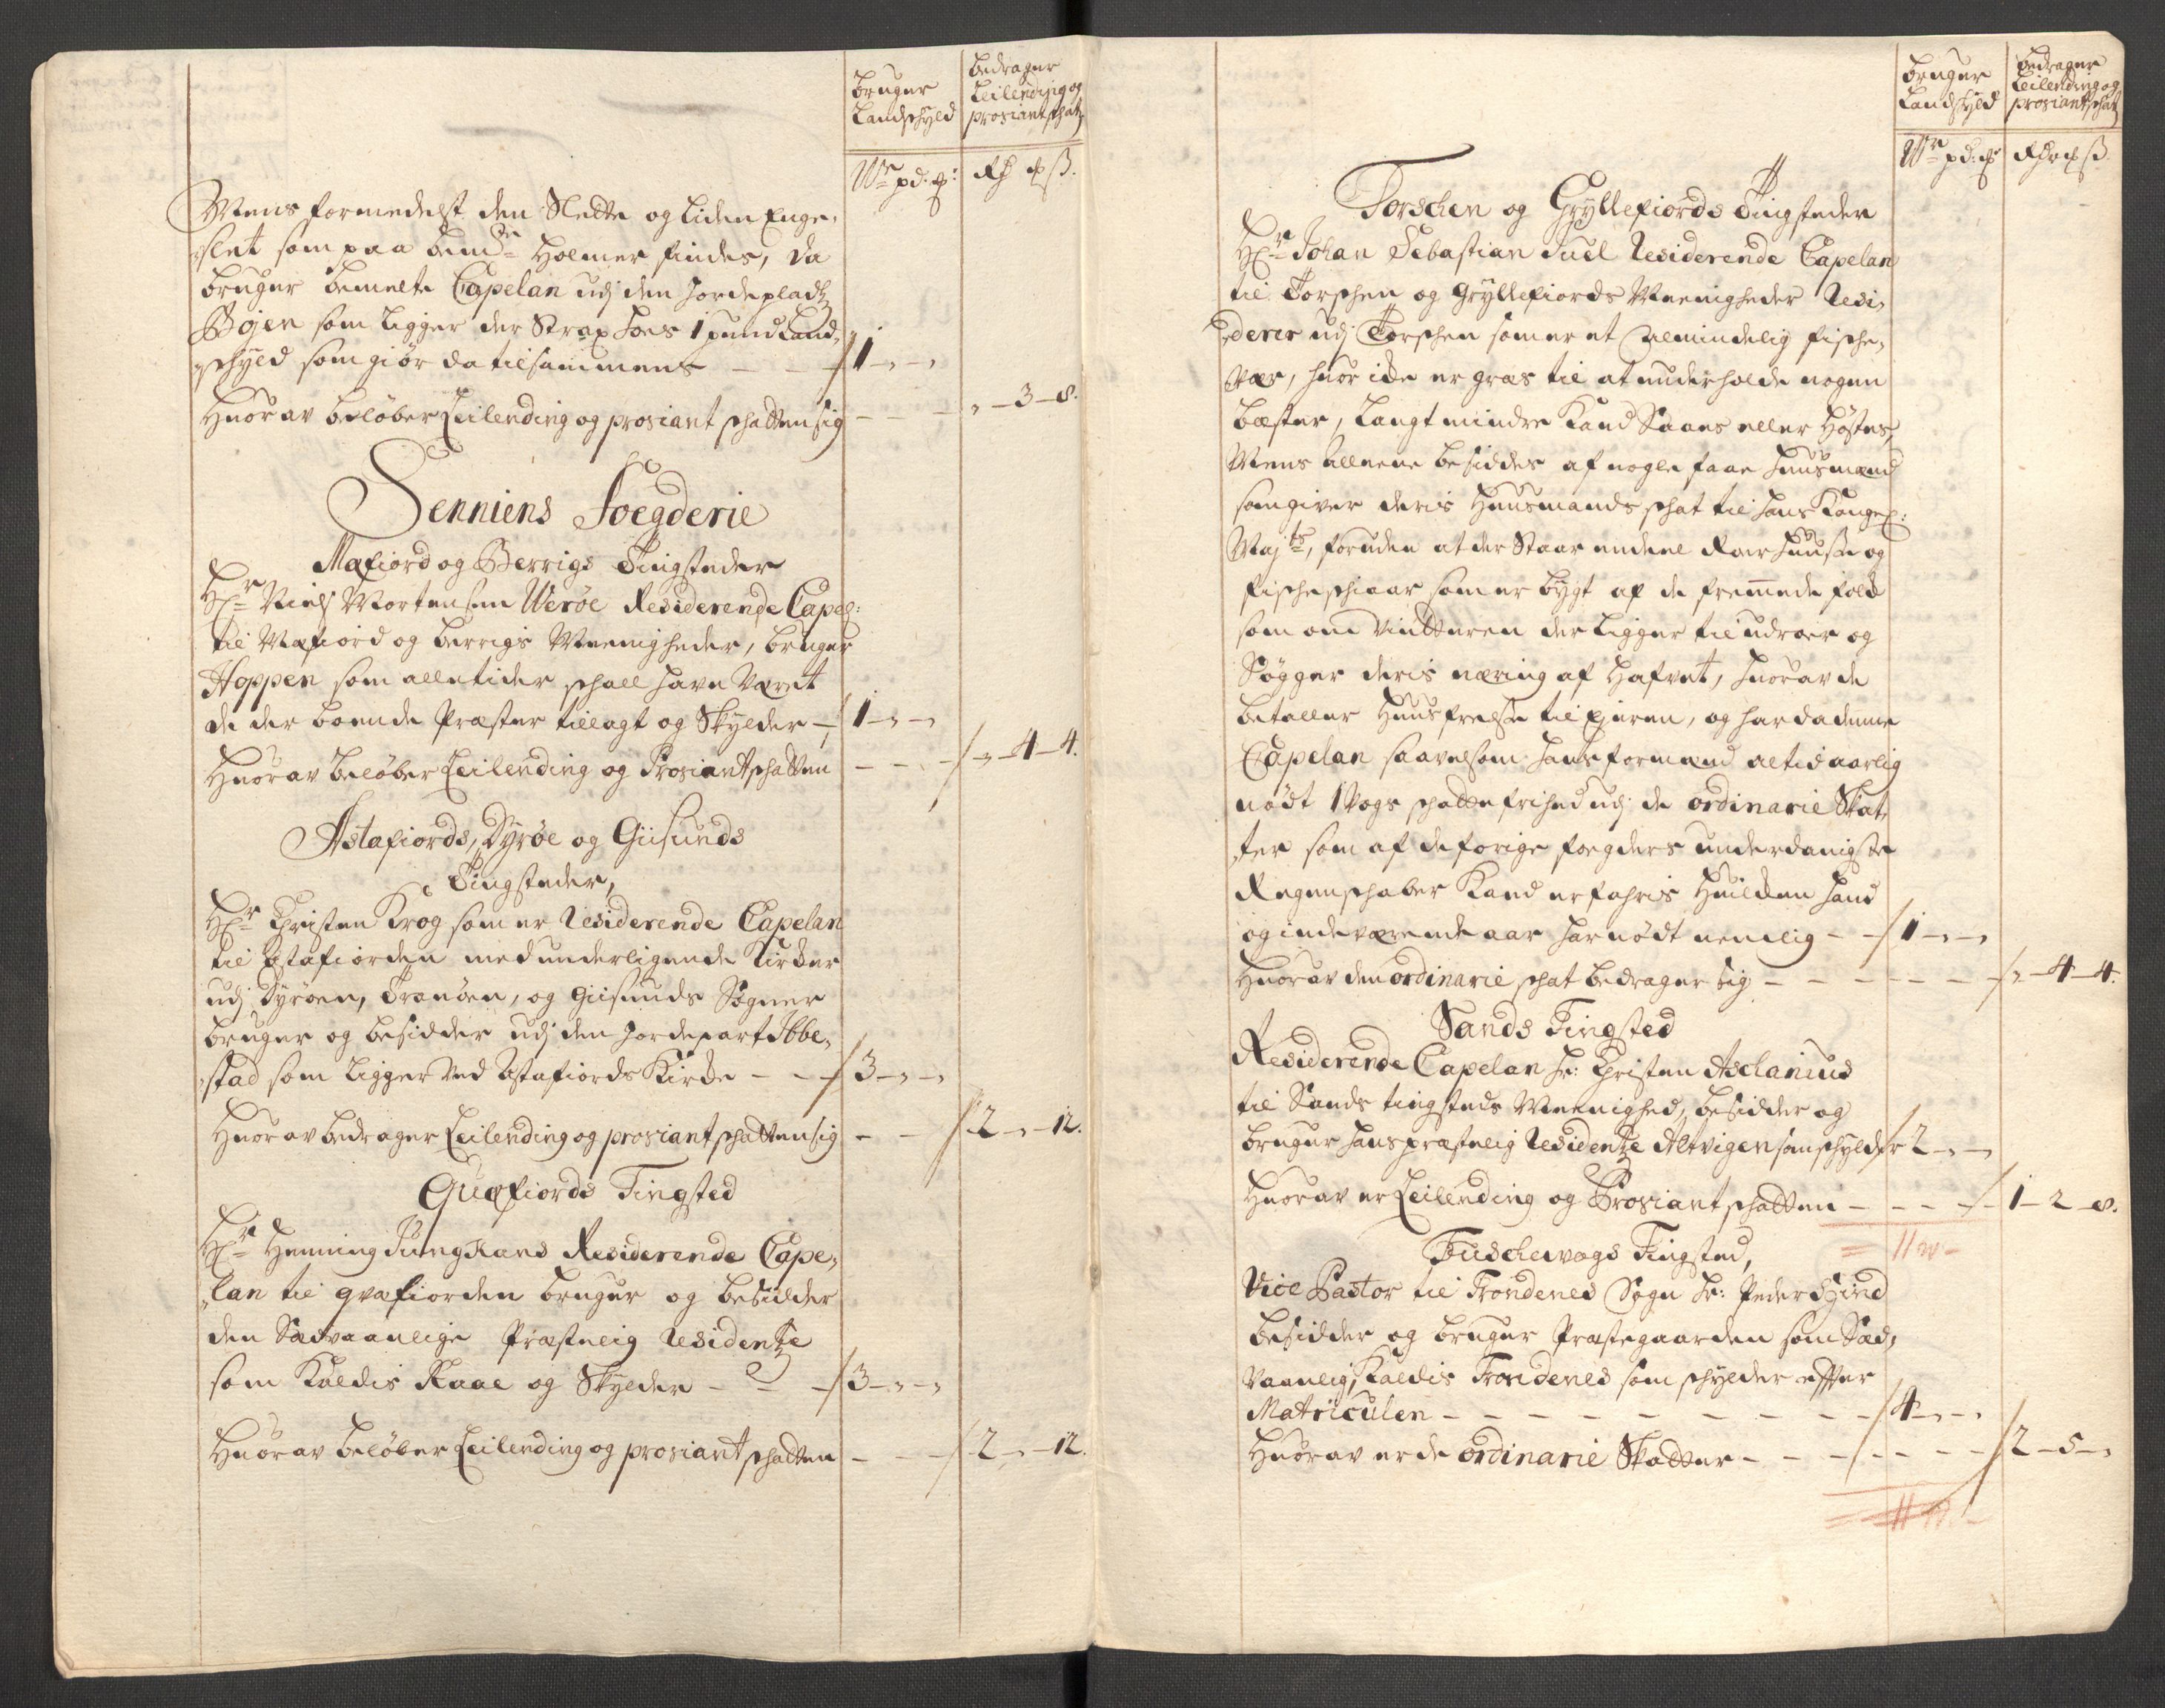 bruger
Landschyld
bedrager
Leilending og
proviantschatt
Wr pd: :
Rd ß.
Mens formedelst den Slette og liden Enge,
slet som paa bemte Holmer findes, da
bruger bemelte Capelan udj den Jordepladtz
Bøjen som ligger der Strax hoes 1 pund Land,
schyld som giør da tilsammens - - - 1 - " - "
Huor av beløber Leilending og proviant schatten sig - - - " - 3 - 8.
Senniens Foegderie
Mafiord og Berrigs Tingsteder
Hr Niels Mortensen Werøe Residerende Capel:
til Mafiord og berrigs Meenigheder, bruger
Hoppen som alletider schall have Været
de der boende Præster tillagt og Skylder - 1 - " - "
Huor av beløber Leilending og Proviantschatten - - - " - 4 - 4.
Astafiords, Dyrøe og Giisunds
Tingsteder,
Hr Christen Krog som er Residerende Capelan
til Astafiorden med underligende Kircker
udj Dyrøen, Tranøen, og Giisunds Sogner
bruger og besidder udj den Jordepart Ibbe,
stad som ligger ved Astafiords Kirke - - - 3 - " - "
Huor av bedrager Leilending og proviantschatten sig - - - 2 - " - 12.
Quæfiords Tingsted
Hr Henning Jungkans Residerende Cape,
lan til qvæfiorden bruger og besidder
den Sædvaanlige Præstelig Residentze
som Kaldis Raae og Skylder - - - 3 - " - "
Huor av beløber Leilending og proviantschatten - - - 2 - " - 12.
bruger
Landschyld
bedrager
Leilending og
proviantschatt
Wr pd: :
Rd ß.
Torschen og Gryllefiords Tingsteder
Hr Johan Sebastian Juel Residerende Capelan
til Torschen og Gryllefiords Meenigheder Resi,
derer udj Torschen som er et Almindelig fische,
vær, huor icke er græs til at underholde nogen
bæster, langt mindre Kand Saaes eller Høstes,
Mens alleene besiddes af nogle faae huusmænd
som giver deris Huusmands schat til hans Kongel:
Majts, foruden at der Staar en deel Roer huuse og
fischeschiaar som er bygt af de fremmede folck
som om Vinteren der ligger til udroer og
Søgger deris næring af Hafvet, huor av de
betaller Huusfrelse til Ejeren, og har da denne
Capelan saavelsom hans formænd altid aarlig
nødt 1 Vogs schattefrihed udj de ordinarie Skat,
ter som af de forige foegders underdanigste
Regenschaber Kand erfahris Huilcken hand
og indeværende aar har nødt nemlig - - 1 - " - "
Huor av den ordinarie schat bedrager sig - - - - - " - 4 - 4.
Sands Tingsted
Residerende Capelan Hr: Christen Asclanius
til Sands tingsteds Meenighed, besidder og
bruger hans præstelig Residentze Altvigen som schylder 2 - " - "
Huor av er Leilending og Proviantschatten - - - - 1 - 2 - 8.
11 w -
Tuschevogs Tingsted,
Vice Pastor til Trondenes Sogn Hr: Peder Hind
besidder og bruger Præstegaarden som Sæd,
vaanlig, Kaldis Trondenes som schylder efter
Matriculen - - - - - - - - - 4 - " - "
Huor av er de ordinarie Skatter - - - - - - 2 - 5 - "